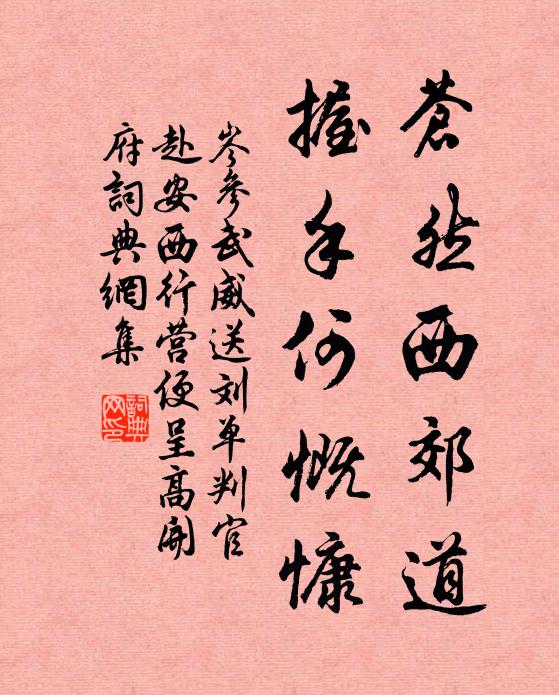 蒼然西郊道
握手何慨慷
岑參武威送刘单判官
赴安西行营便呈高開
府詞典網集
詞典
网印